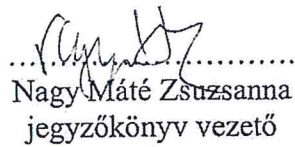 Nagy Máté Zsuzsanna
jegyzőkönyv vezető